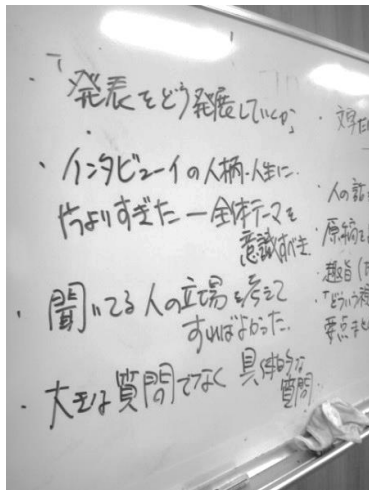 ・「発表をどう発展していくか」
・インタビューイの人柄・人生に
やりすぎた ー 全体テーマを
意識すべき
・聞いてる人の立場を考えて
すればよかった.
・大きな質問でなく 具体的な
質問
・文字
・人の話
原稿を
・趣旨
「どういう
要点まと